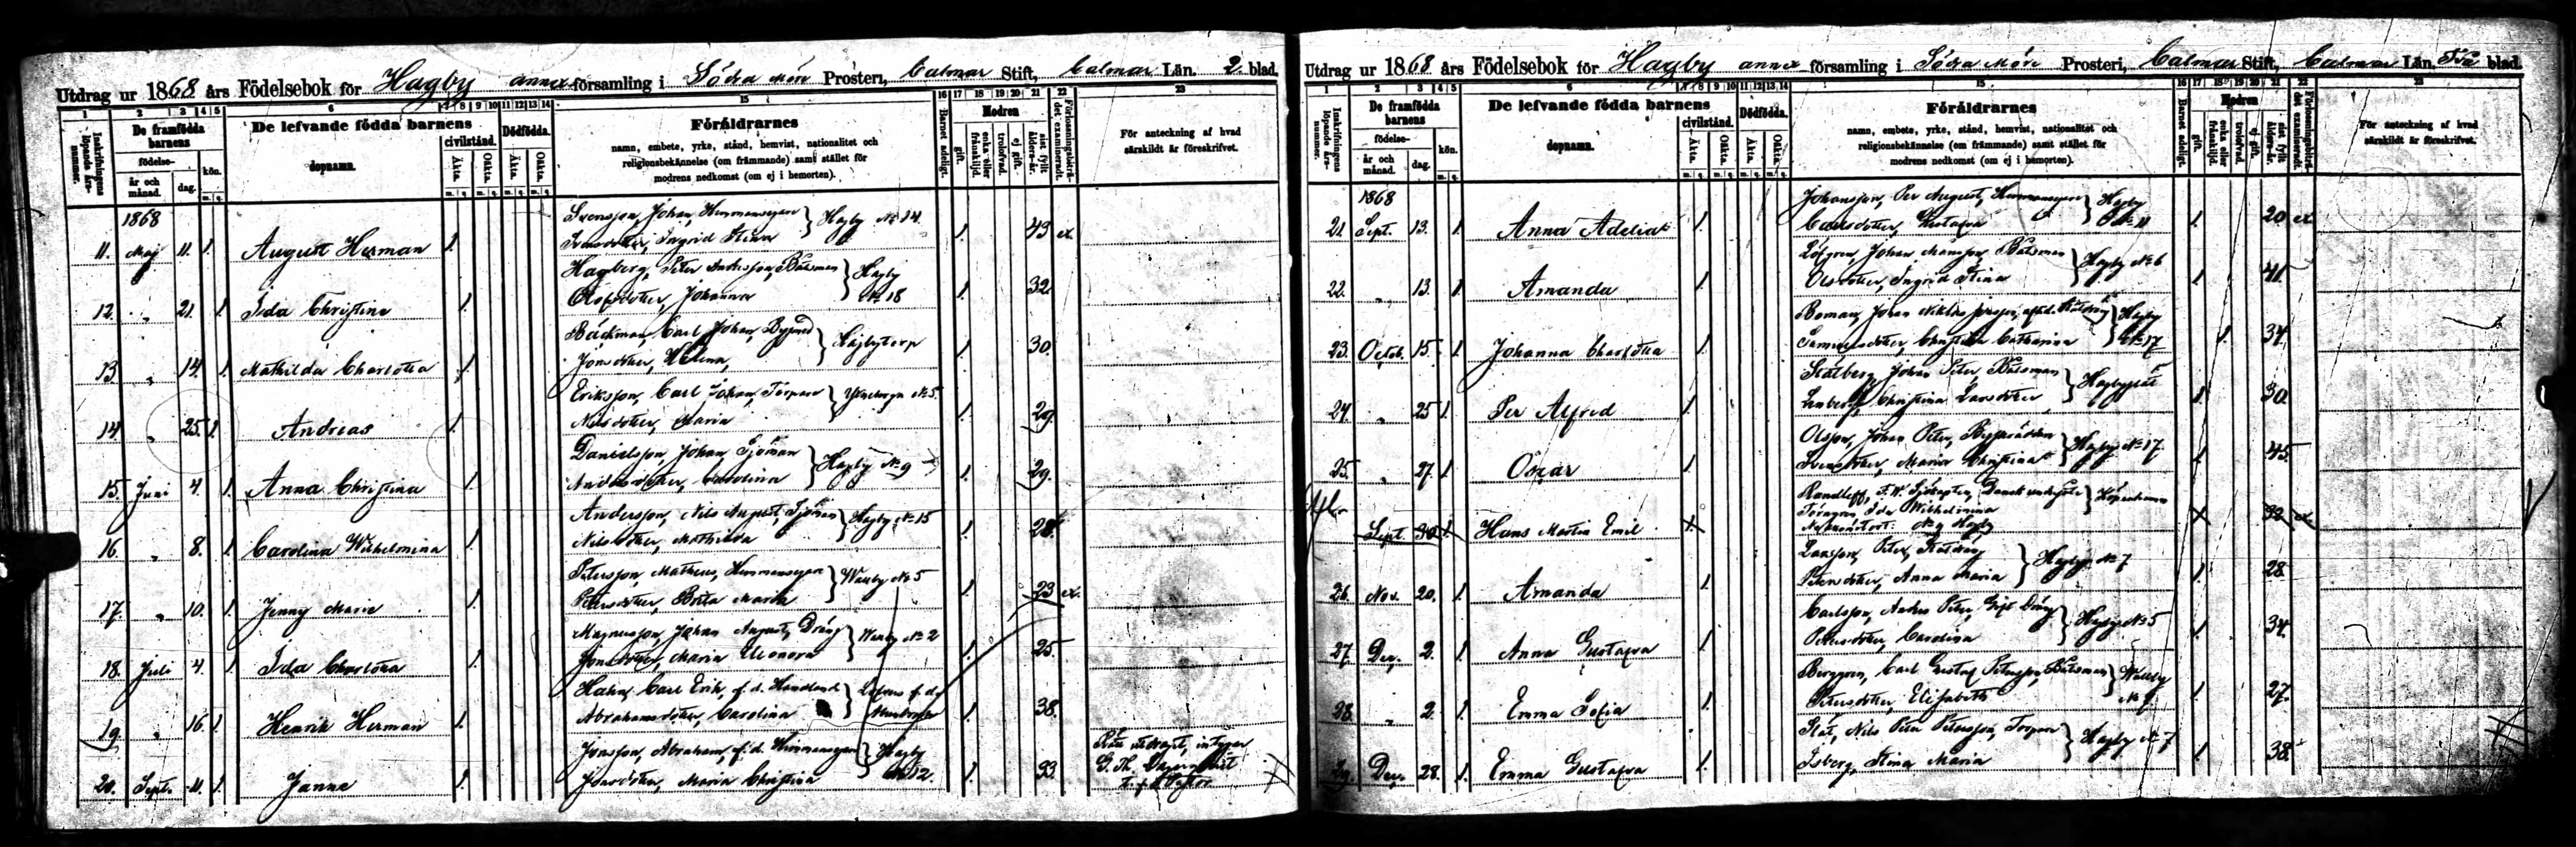 Utdrag ur 1868 års Födelsebok för Hagby annex församling i Södra Möre Prosteri, Calmar Stift, Calmar Län. 2. blad.
1 2 3 4 5 6 7 8 9 10 11 12 13 14 15 16 17 18 19 20 21 22 23
Inskrifningens löpande års-nummer.
De framfödda barnens
födelse-
år och månad.
dag.
kön.
m. q.
De lefvande födda barnens
dopnamn.
civilstånd.
Äkta. Oäkta.
Dödfödda.
Äkta. Oäkta.
m. q. m. q. m. q. m. q.
Föräldrarnes
namn, embete, yrke, stånd, hemvist, nationalitet och
religionsbekännelse (om främmande) samt stället för
modrens nedkomst (om ej i hemorten).
Barnet adeligt.
Modren
gift.
enka eller frånskild.
trolofvad.
ej gift.
sist fyllt ålders-år.
Förlossningsbiträ-det examineradt.
För anteckning af hvad
särskildt är föreskrifvet.
1868
Svensson, Johan, Hemmansegare } Hagby No 14.
11. Maj 11. 1. August Herman 1. Svensdotter, Ingrid Stina 1. 43 ex.
Hagberg, Peter Andersson, Båtsman } Hagby
12. " 21. 1. Ida Christina 1. Olofsdotter, Johanna No 18 1. 32.
Bäckman, Carl Johan, } Hagbytorp
13 " 14. 1. Mathilda Charlotta 1. Jonsdotter, Helena, 1. 30.
Eriksson, Carl Johan, Torpare } No 5.
14 " 25. 1. Andreas 1. Nilsdotter, Maria 1. 29.
Danielsson, Johan, Sjöman } Hagby No 9
15. Juni 4. 1. Anna Christina 1. Andersdotter, Carolina 1. 29.
Andersson, Nils August, Sjöman } Hagby No 15
16. " 8. 1. Carolina Wilhelmina 1. Nilsdotter, Mathilda 1. 28.
Petersson, Matheus, Hemmansegare } No 5
17. " 10. 1. Jenny Maria 1. Petersdotter, Brita Maria 1. 23 ex.
Magnusson, Johan August, Dräng } No 2
18. Juli 4. 1. Ida Charlotta 1. Jonsdotter, Maria Eleonora 1. 25.
Hahn, Carl Erik, f. d. Handland }
19. " 16. 1. Henrik Herman 1. Abrahamsdotter, Carolina 1. 38.
Jonsson, Abraham, f. d. Hemmansegare } Hagby
20. Sept. 11. 1. Janne 1. Jonsdotter, Maria Christina No 12. 1. 33.
Rätt utdraget, intygar
Utdrag ur 1868 års Födelsebok för Hagby annex församling i Södra Möre Prosteri, Calmar Stift, Calmar Län. Två blad.
1 2 3 4 5 6 7 8 9 10 11 12 13 14 15 16 17 18 19 20 21 22 23
Inskrifningens löpande års-nummer.
De framfödda barnens
födelse-
år och månad.
dag.
kön.
m. q.
De lefvande födda barnens
dopnamn.
civilstånd.
Äkta. Oäkta.
Dödfödda.
Äkta. Oäkta.
m. q. m. q. m. q. m. q.
Föräldrarnes
namn, embete, yrke, stånd, hemvist, nationalitet och
religionsbekännelse (om främmande) samt stället för
modrens nedkomst (om ej i hemorten).
Barnet adeligt.
Modren
gift.
enka eller frånskild.
trolofvad.
ej gift.
sist fyllt ålders-år.
Förlossningsbiträ-det examineradt.
För anteckning af hvad
särskildt är föreskrifvet.
1868
Johansson, Per August, Hemmansegare } Hagby
21. Sept. 13. 1. Anna Adelia 1. Carlsdotter, Gustafva No 11 1. 20 ex
Löfgren, Johan Månsson, Båtsman } Hagby No 6
22. " 13. 1. Amanda 1. Olsdotter, Ingrid Stina 1. 41
Boman, Johan Niklas } Hagby
23. Octob. 15. 1. Johanna Charlotta 1. Samuelsdotter, Christina Catharina No 17 1. 34.
Stålberg, Johan Peter, Båtsman }
24. " 25 1. Per Alfred 1. Christina Larsdotter 1. 30
Olsson, Johan Peter, } Hagby No 17.
25. " 27. 1. Oscar 1. Svensdotter, Maria Christina 1. 45.
F. W. Sjökapten, Dansk undersåte } Köpenhamn
Sept. 30 1. Hans Martin Emil Ida Wilhelmina 32 ex
No 9 Hagby
Larsson, Peter, } Hagby No 7
26. Nov. 20. 1. Amanda 1. Petersdotter, Anna Maria 1. 28
Carlsson, Anders Peter, Gift Dräng } Hagby No 5
27. Dec. 2. 1. Anna Gustafva 1. Petersdotter, Carolina 1. 34.
Berggren, Carl Gustaf Petersson, Båtsman }
28. " 2. 1. Emma Sofia 1. Petersdotter, Elisabeth 1. 27.
Nils Peter Petersson, Torpare } Hagby No 7
29. Dec. 28. 1. Emma Gustafva 1. Isberg, Stina Maria 1. 38